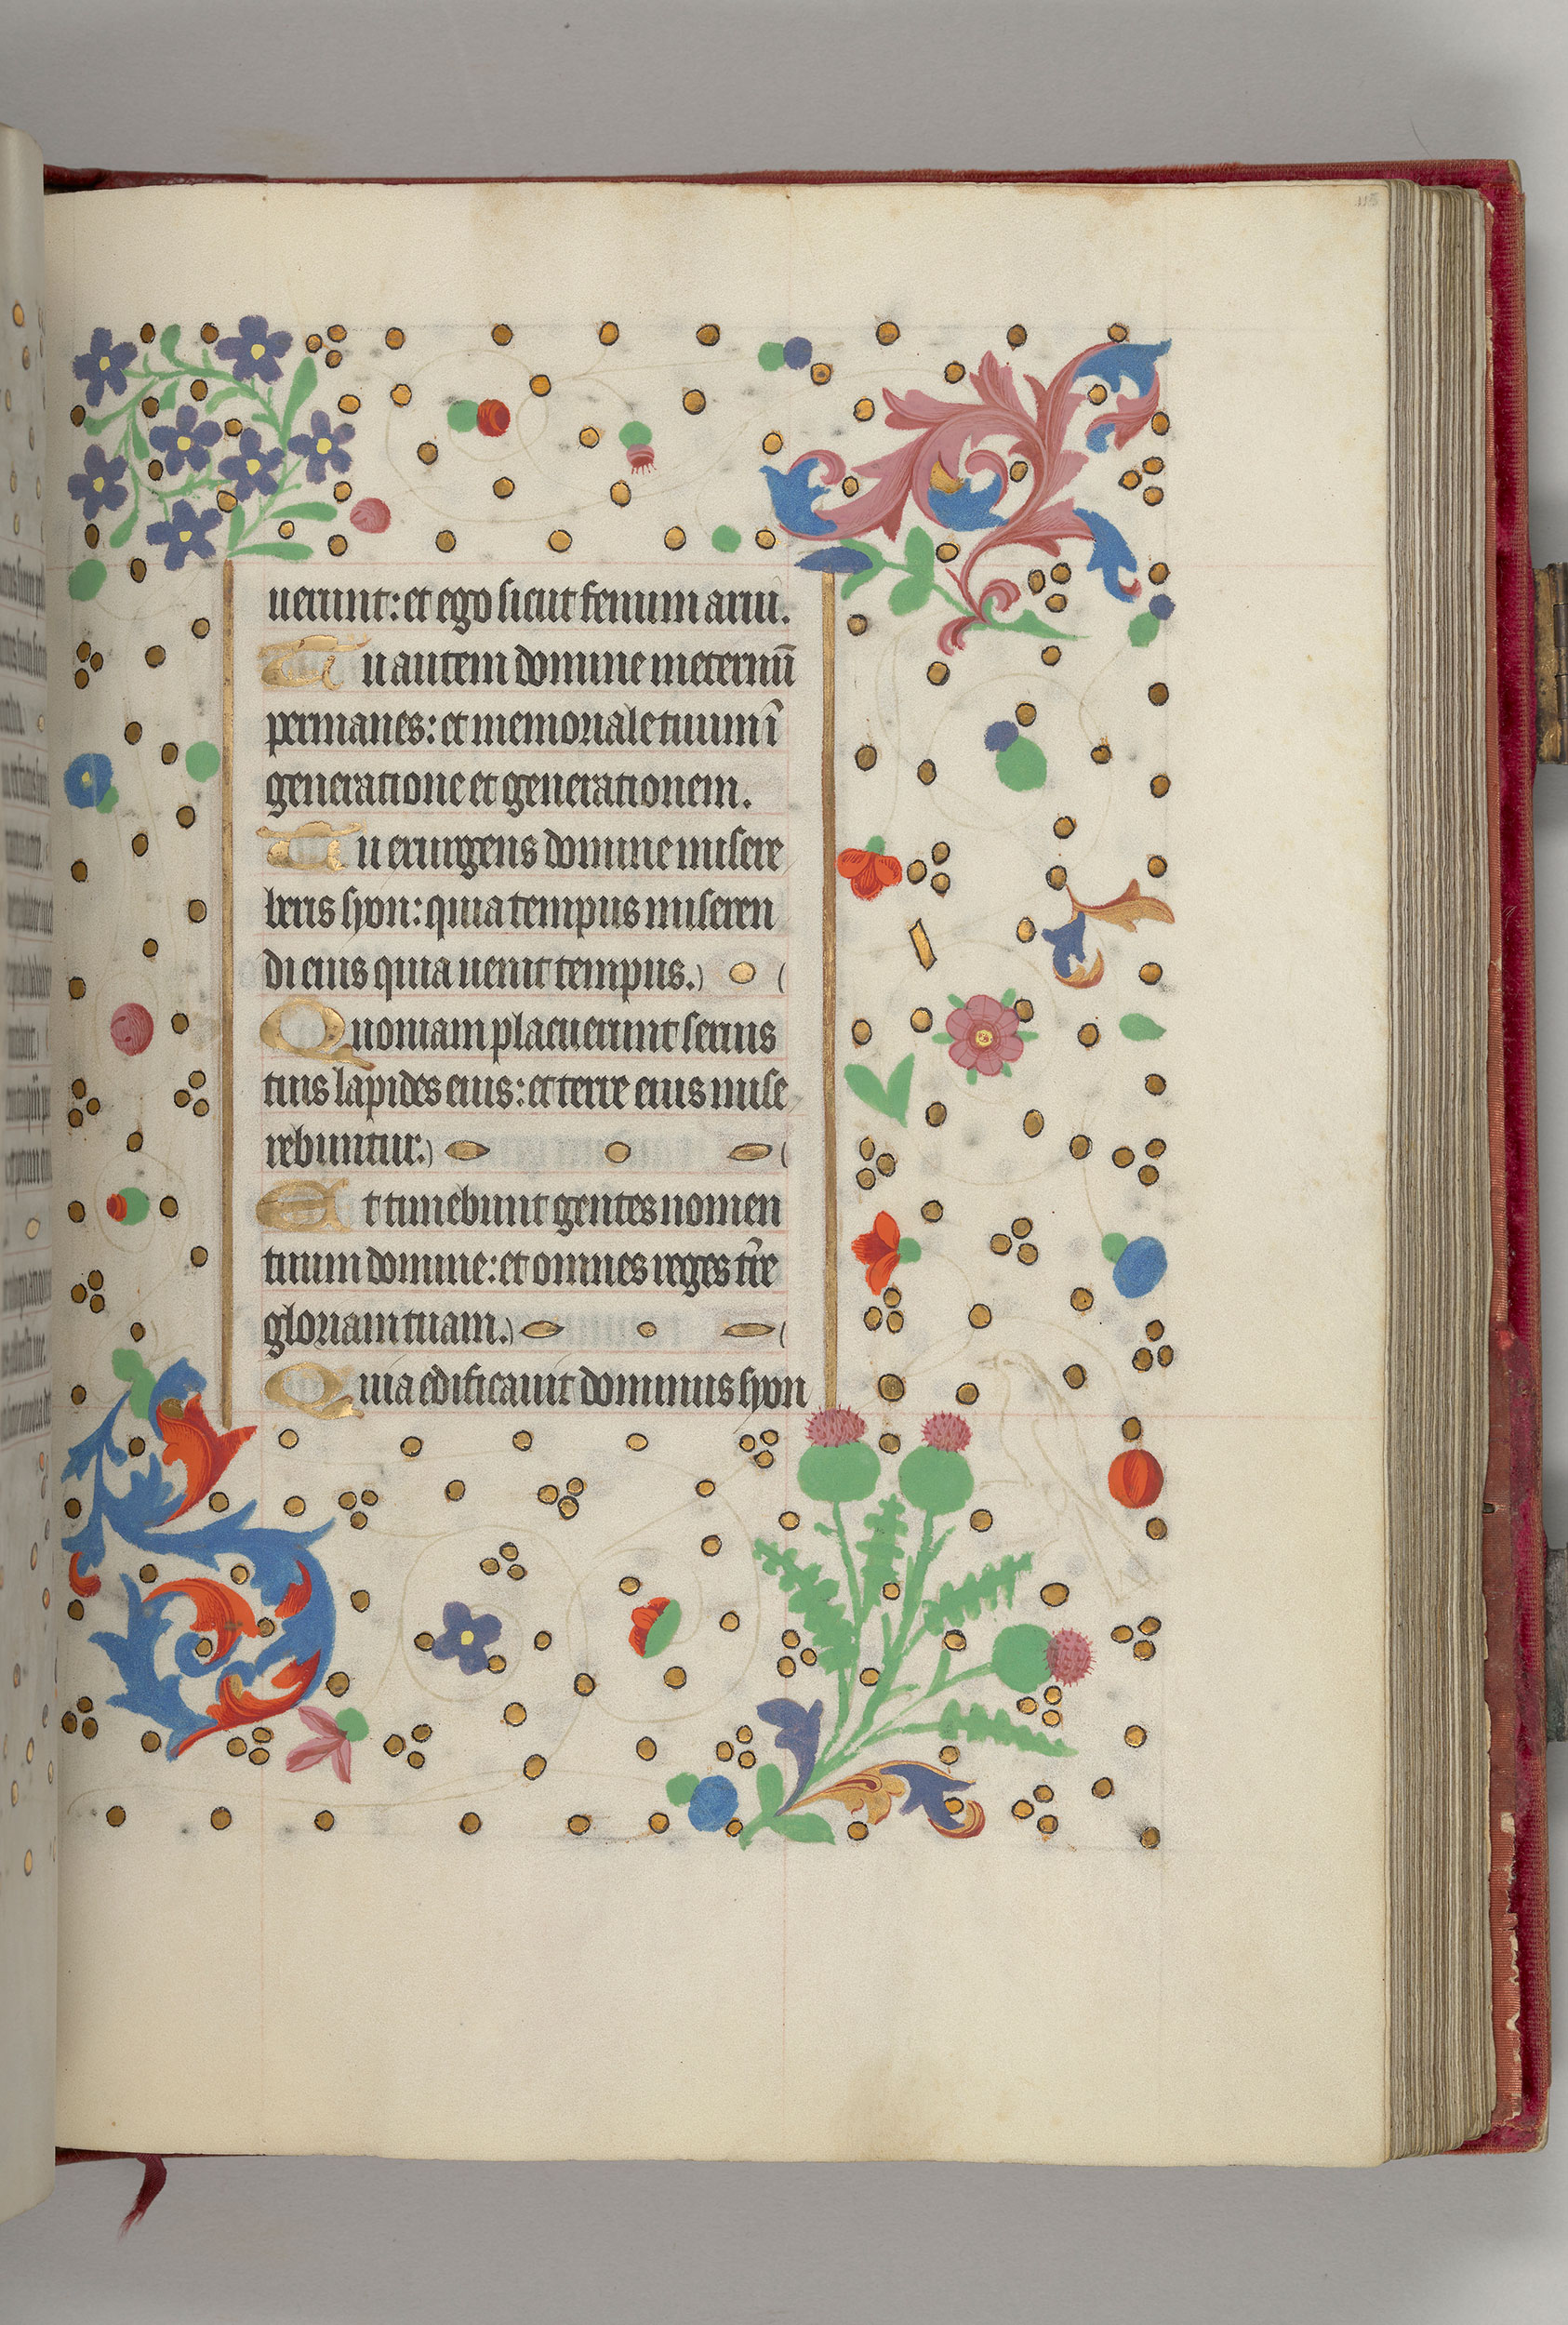 uerunt: et ego sicut fenum arui.
Tu autem domine ineternũ
permanes: et memoriale tuum ĩ
generatione et generationem.
Tu exurgens domine misere
beris syon: quia tempus miseren
di eius quia uenit tempus.
Quoniam placuerunt seruis
tuis lapides eius: et terre eius mise
rebuntur.
Et timebunt gentes nomen
tuum domine: et omnes reges tr̃e
gloriam tuam.
Quia edificauit dominus syon